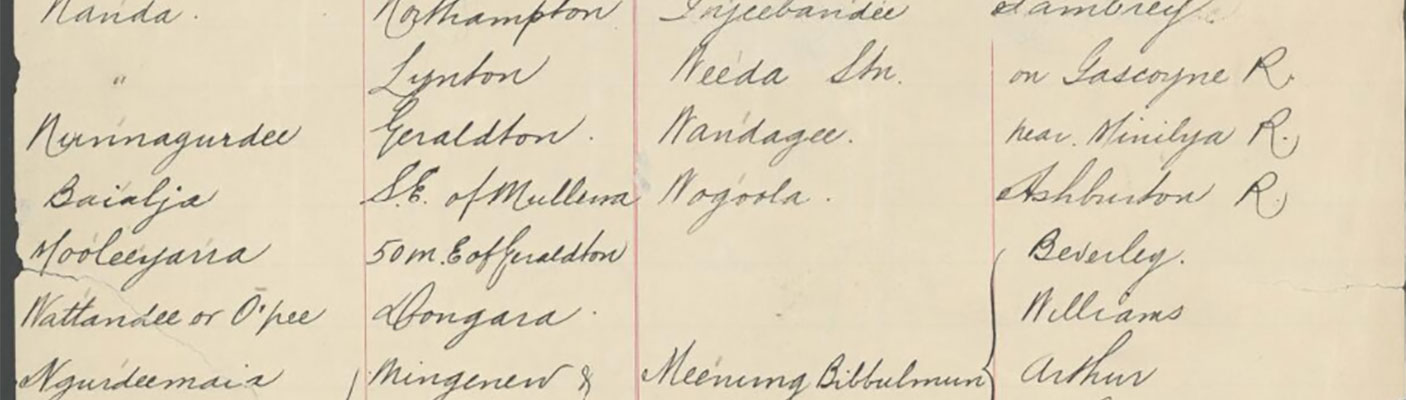 Nanda. Northampton Ingeebandee Lambrey
" Lynton Weeda Stn. on Gascoyne R.
Nunnagurdee Geraldton. Wandagee. near. Minilya R.
Baialja S.E. of Mullewa Nogoola. Ashburton R.
Mooleeyarra 50 m. E of Geraldton Beverley.
Wattandee or O'pee Dongara. Williams
Ngurdeemaia Mingenew & Meenung Bibbulmun Arthur